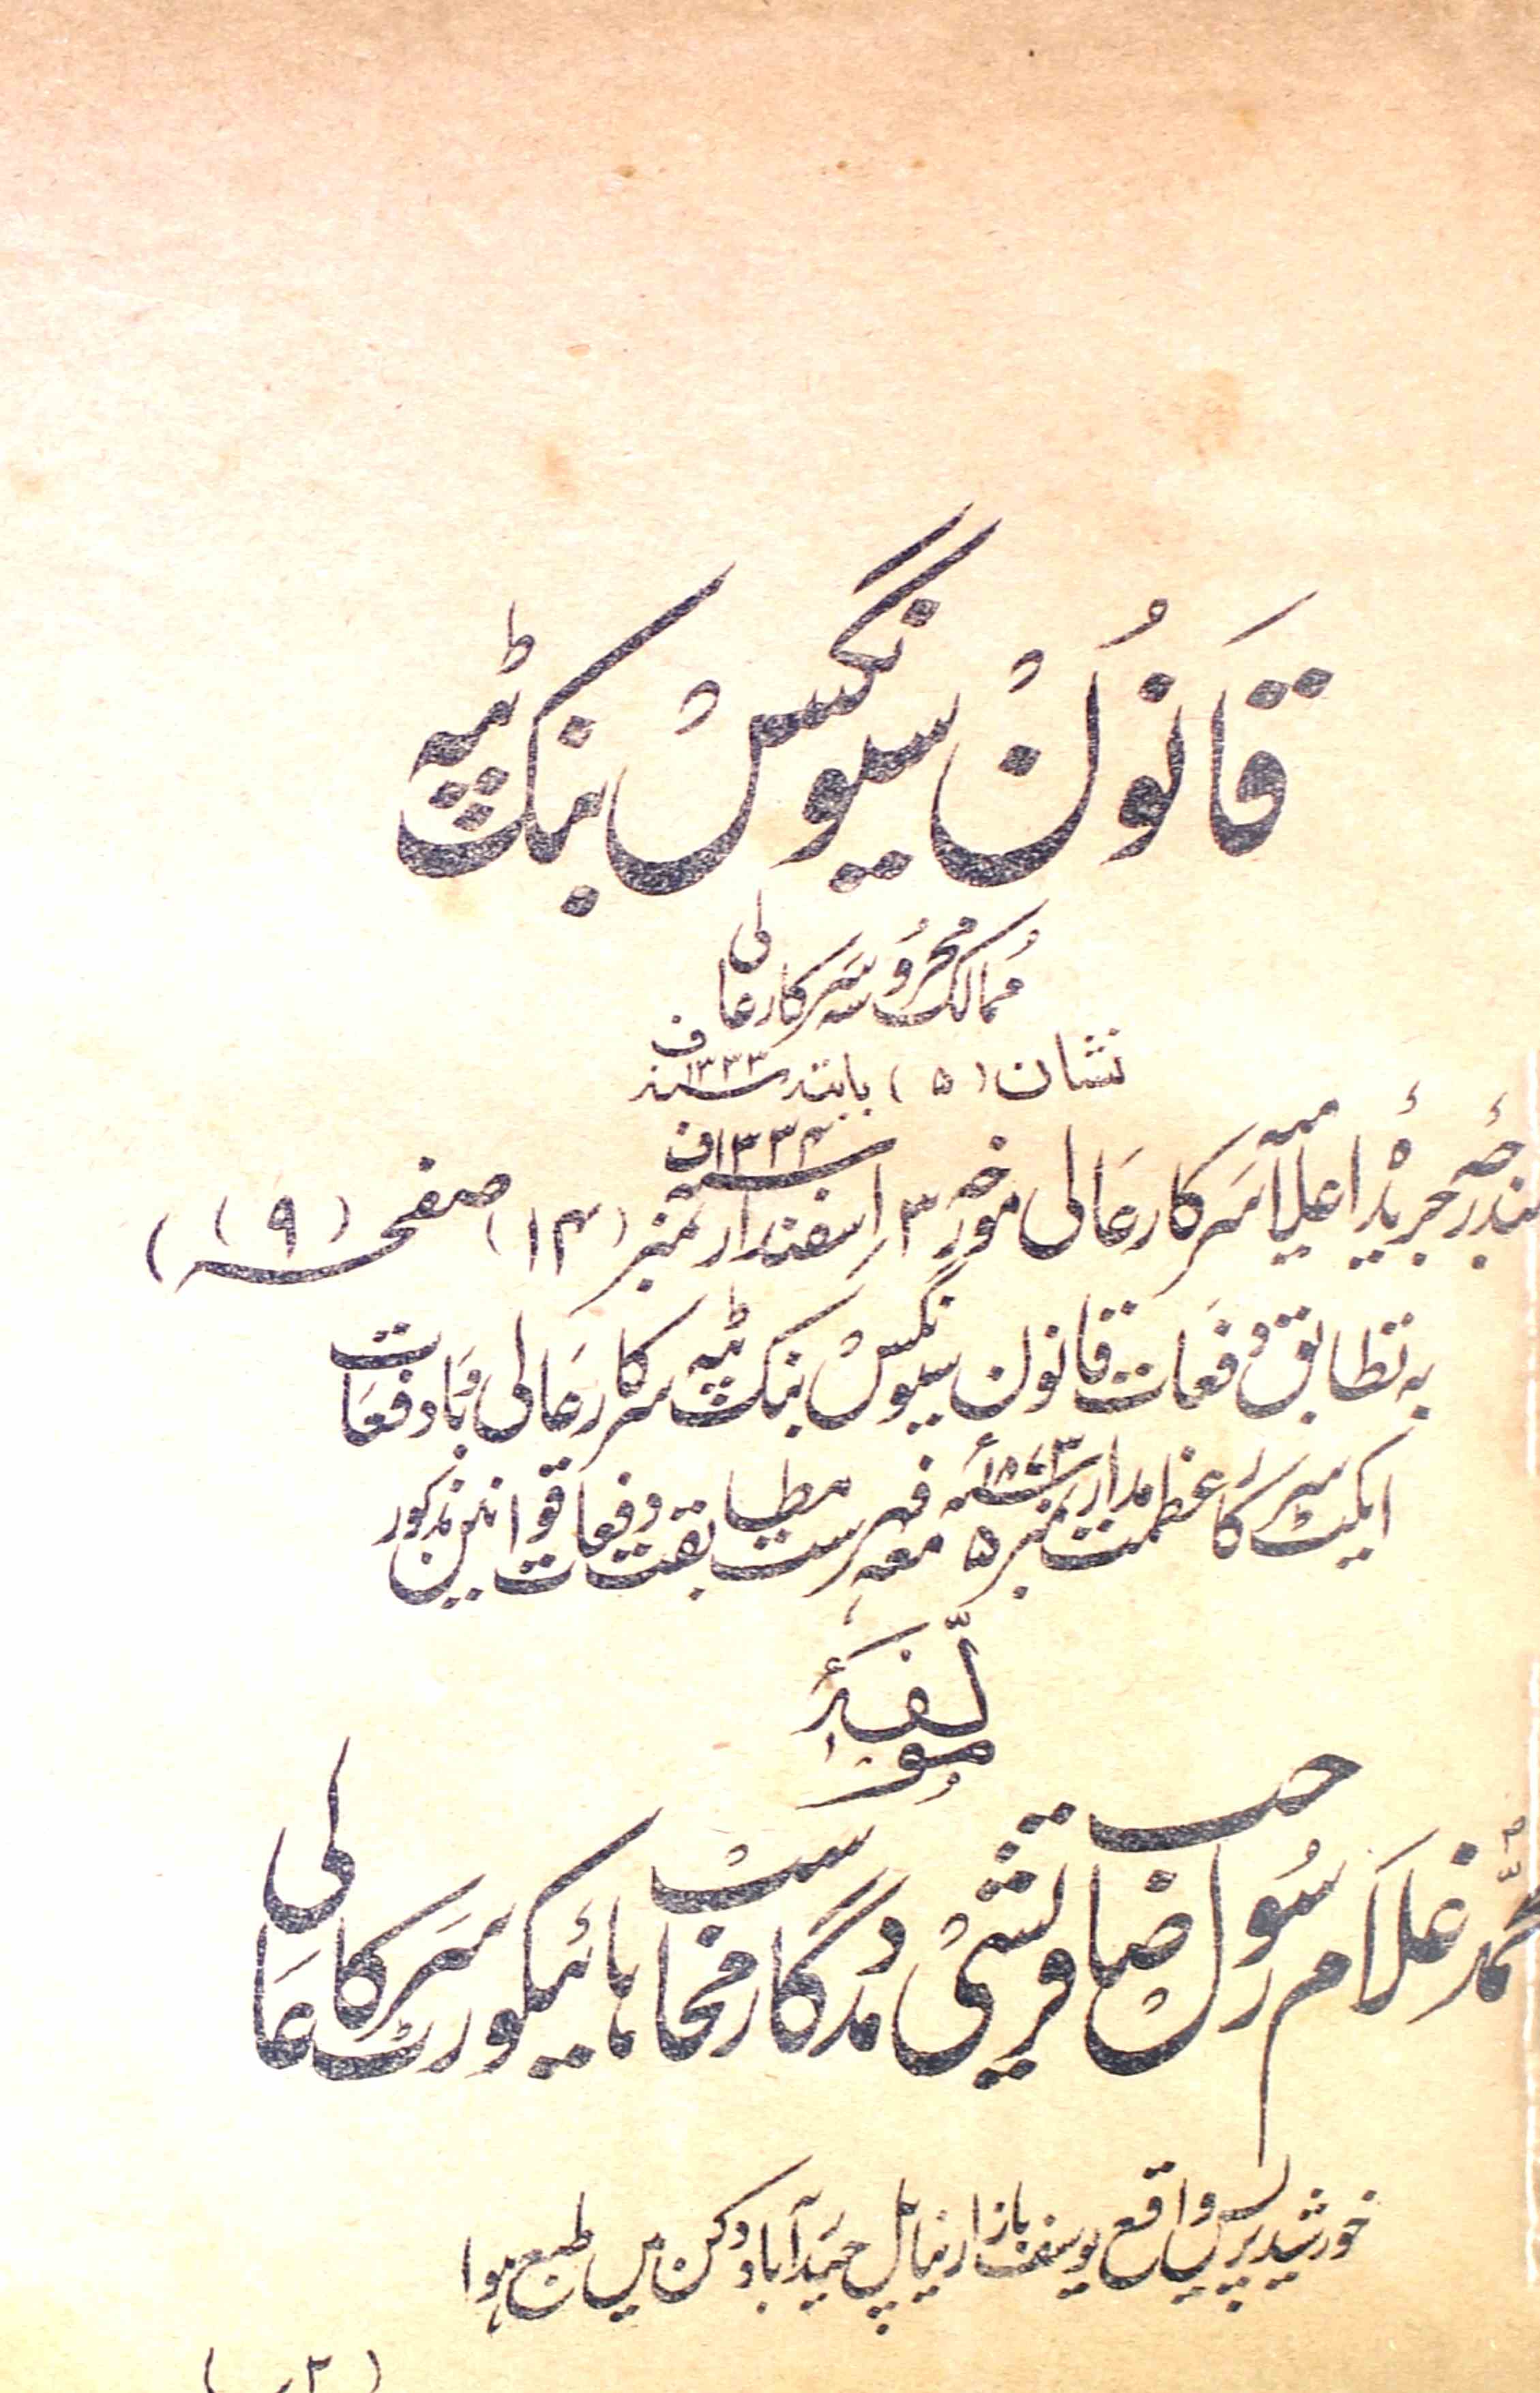 قانون سیونگس بنک ٹپہ
ممالک محروسہ سرکار عالی
نشان (۵) بابتہ سنہ ۱۳۳۳ ف
مندرجہ جریدۂ اعلامیہ سرکار عالی مورخہ ۳ اسفندار سنہ ۱۳۳۴ ف نمبر (۱۴) صفحہ (۹)
بہ تطابق دفعات قانون سیونگس بنک ٹپہ سرکار عالی و با دفعات
ایکٹ سرکار عظمت مدار نمبر ۵ سنہ ۱۸۷۳ء معہ فہرست مطابقت دفعات قوانین مذکور
مولفہ
محمد غلام رسول صاحب قریشی مددگار محاسب ہائیکورٹ سرکار عالی
خورشید پریس واقع یوسف بازار نیاپل حیدرآباد دکن میں طبع ہوا